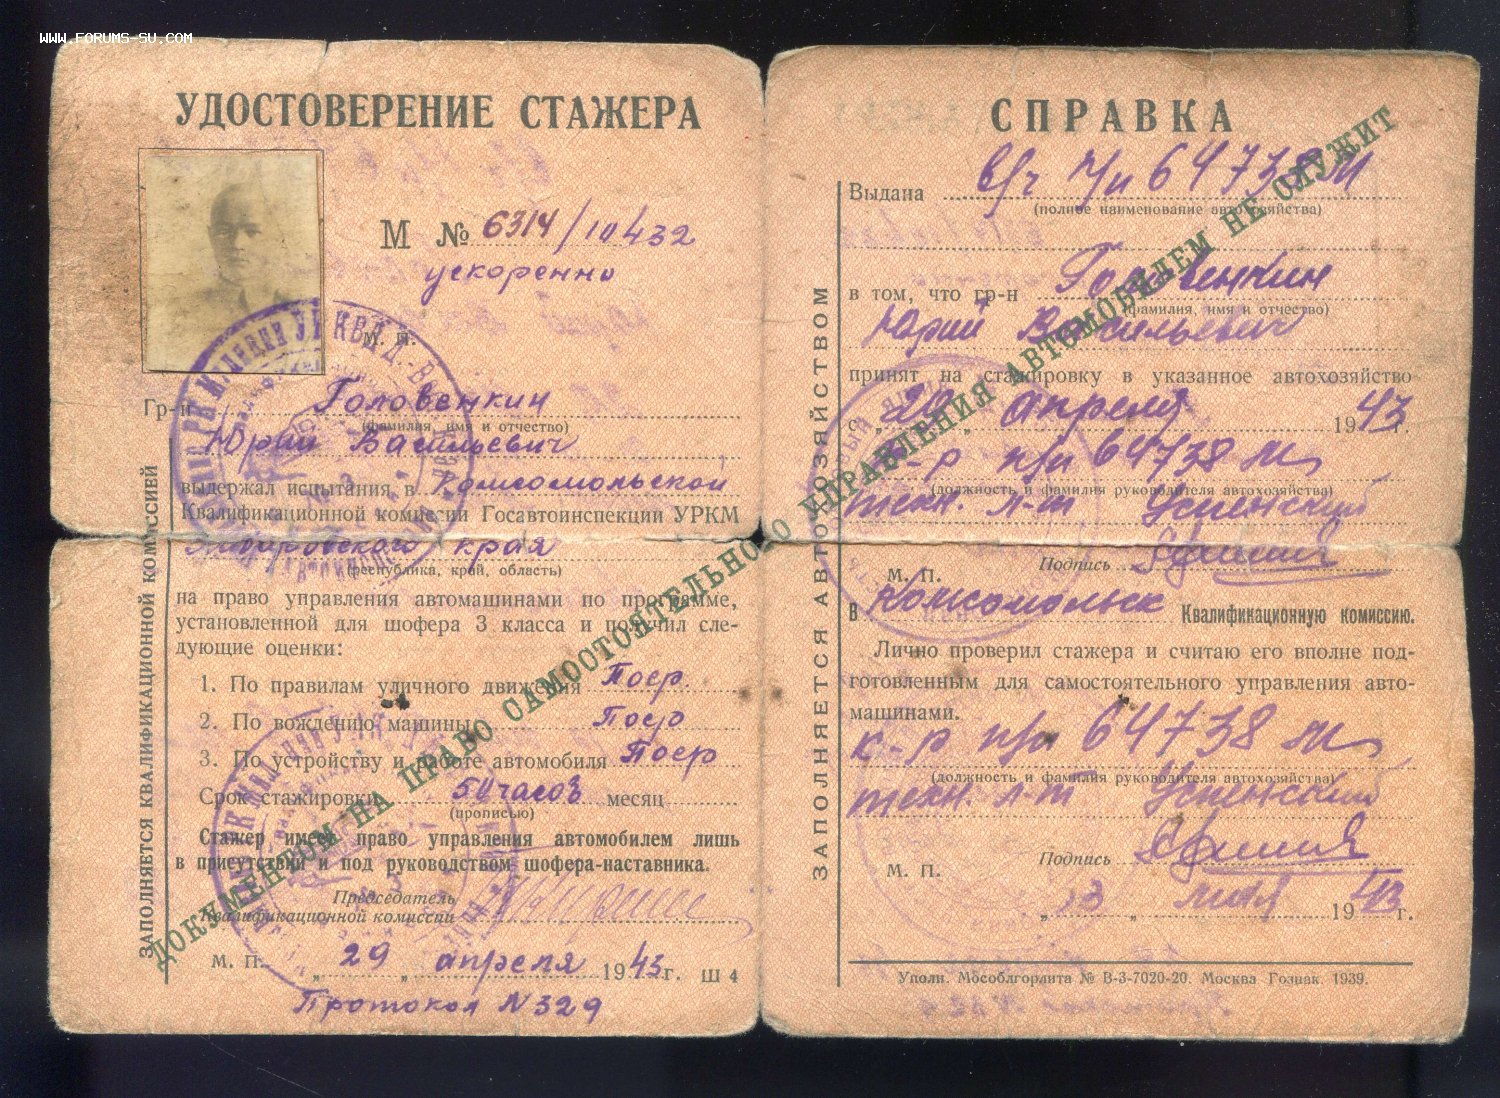 WWW.FORUMS-SU.COM
УДОСТОВЕРЕНИЕ СТАЖЕРА
М № 6314/10432
ускоренно
М. П.
Гр-н Головенкин
(фамилия, имя и отчество)
Юрий Васильевич
выдержал испытания в Комсомольской
Квалификационной комиссии Госавтоинспекции УРКМ
Хабаровского края
(республика, край, область)
на право управления автомашинами по программе,
установленной для шофера 3 класса и получил сле-
дующие оценки:
1. По правилам уличного движения Поср.
2. По вождению машины Поср
3. По устройству и работе автомобиля Поср
Срок стажировки 50 часов месяц
(прописью)
Стажер имеет право управления автомобилем лишь
в присутствии и под руководством шофера-наставника.
Председатель
Квалификационной комиссии
М. П. „29„ апреля 1943 г. Ш 4
Протокол N 329
ЗАПОЛНЯЕТСЯ КВАЛИФИКАЦИОННОЙ КОМИССИЕЙ
ДОКУМЕНТОМ НА ПРАВО САМОСТОЯТЕЛЬНОГО УПРАВЛЕНИЯ АВТОМОБИЛЕМ НЕ СЛУЖИТ
СПРАВКА
Выдана в/ч п/п 64738 М
(полное наименование автохозяйства)
в том, что гр-н Головенкин
(фамилия, имя и отчество)
Юрий Васильевич
принят на стажировку в указанное автохозяйство
с „29„ апреля 1943 г.
к-р п/п 64738 М
(должность и фамилия руководителя автохозяйства)
техн. л-т Успенский
М. П. Подпись
В Комсомольск Квалификационную комиссию.
Лично проверил стажера и считаю его вполне под-
готовленным для самостоятельного управления авто-
машинами.
к-р п/п 64738 М
(должность и фамилия руководителя автохозяйства)
техн. л-т Успенский
М. П. Подпись
„13„ мая 1943 г.
Уполн. Мособлгорлита № В-3-7020-20. Москва Гознак 1939.
ЗАПОЛНЯЕТСЯ АВТОХОЗЯЙСТВОМ